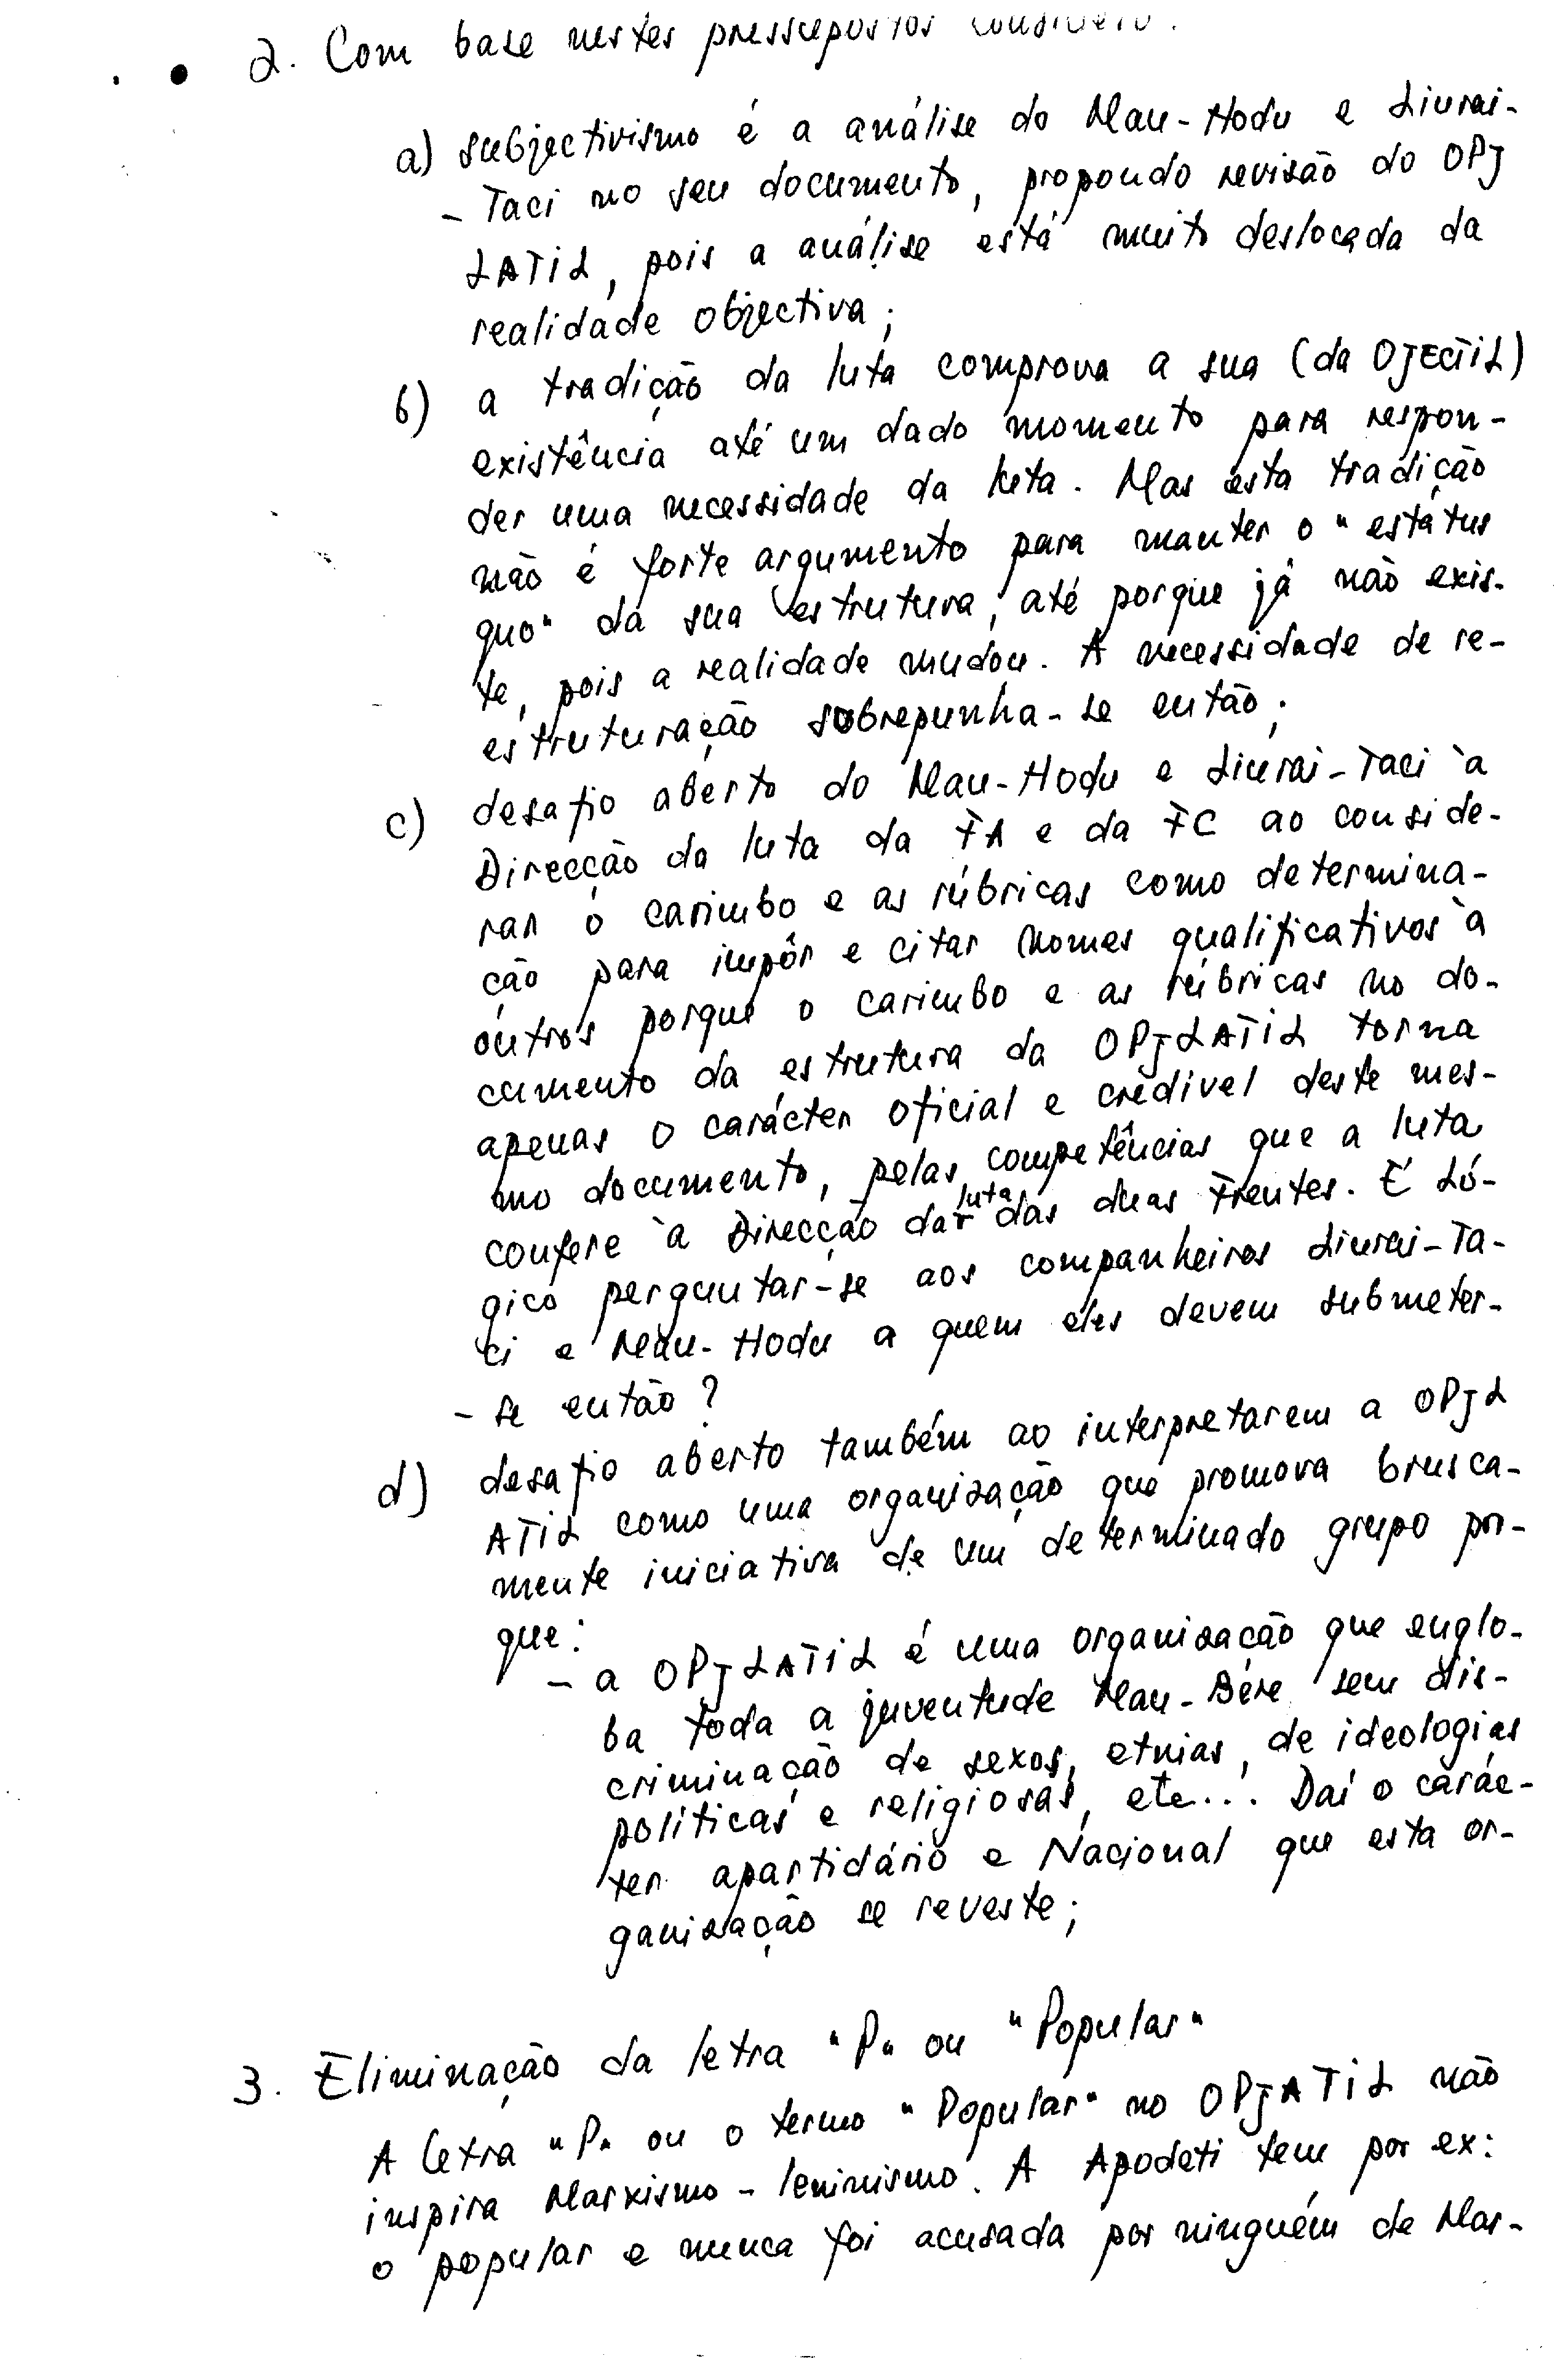 2. Com base nestes pressupostos considero:
a) subjectivismo é a análise do Mau-Hodu e Liurai-
- Taci no seu documento, propondo revisão do OPJ
LATIL, pois a análise está muito deslocada da
realidade objectiva;
b) a tradição da luta comprova a sua (da OJECTIL)
existência até um dado momento para respon-
der uma necessidade da luta. Mas esta tradição
não é forte argumento para manter o "estátus
quo" da sua estrutura, até porque já não exis-
te, pois a realidade mudou. A necessidade de re-
estruturação sobrepunha-se então;
c) desafio aberto do Mau-Hodu e Liurai-Taci à
Direcção da luta da FA e da FC ao conside-
rar o carimbo e as rúbricas como determina-
ção para impôr e citar nomes qualificativos à
outros porque o carimbo e as rúbricas no do-
cumento da estrutura da OPJLATIL torna
apenas o carácter oficial e credivel deste mes-
mo documento, pelas competências que a luta
confere à Direcção da luta das duas Frentes. É Ló-
gico perguntar-se aos companheiros Liurai-Ta-
ci e Mau-Hodu a quem eles devem submeter-
- se então?
d) desafio aberto também ao interpretarem a OPJL
ATIL como uma organização que promova brusca-
mente iniciativa de um determinado grupo por-
que:
- a OPJLATIL é uma organização que englo-
ba toda a juventude Mau-Bere sem dis-
criminação de sexos, etnias, de ideologias
políticas e religiosas, etc... Daí o carác-
ter apartidário e Nacional que esta or-
ganização se reveste;
3. Eliminação da letra "P" ou "Popular"
A letra "P" ou o termo "Popular" no OPJATIL não
inspira Marxismo-leninismo. A Apodeti tem por ex:
o popular e nunca foi acusada por ninguém de Mar-